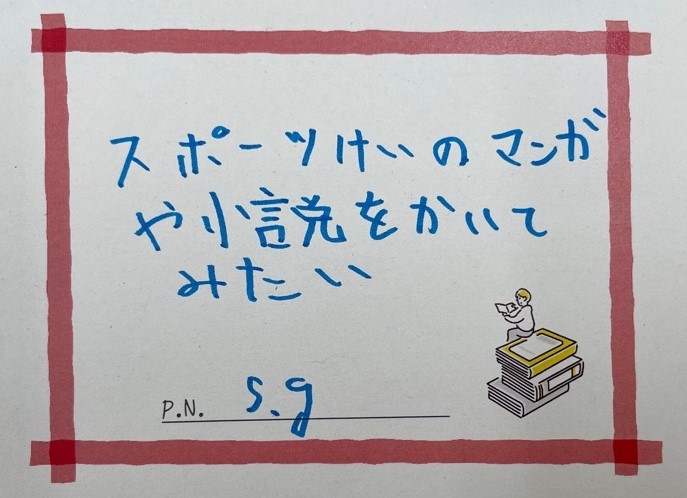 スポーツけいのマンガ
や小説をかいて
みたい
P.N. s.g